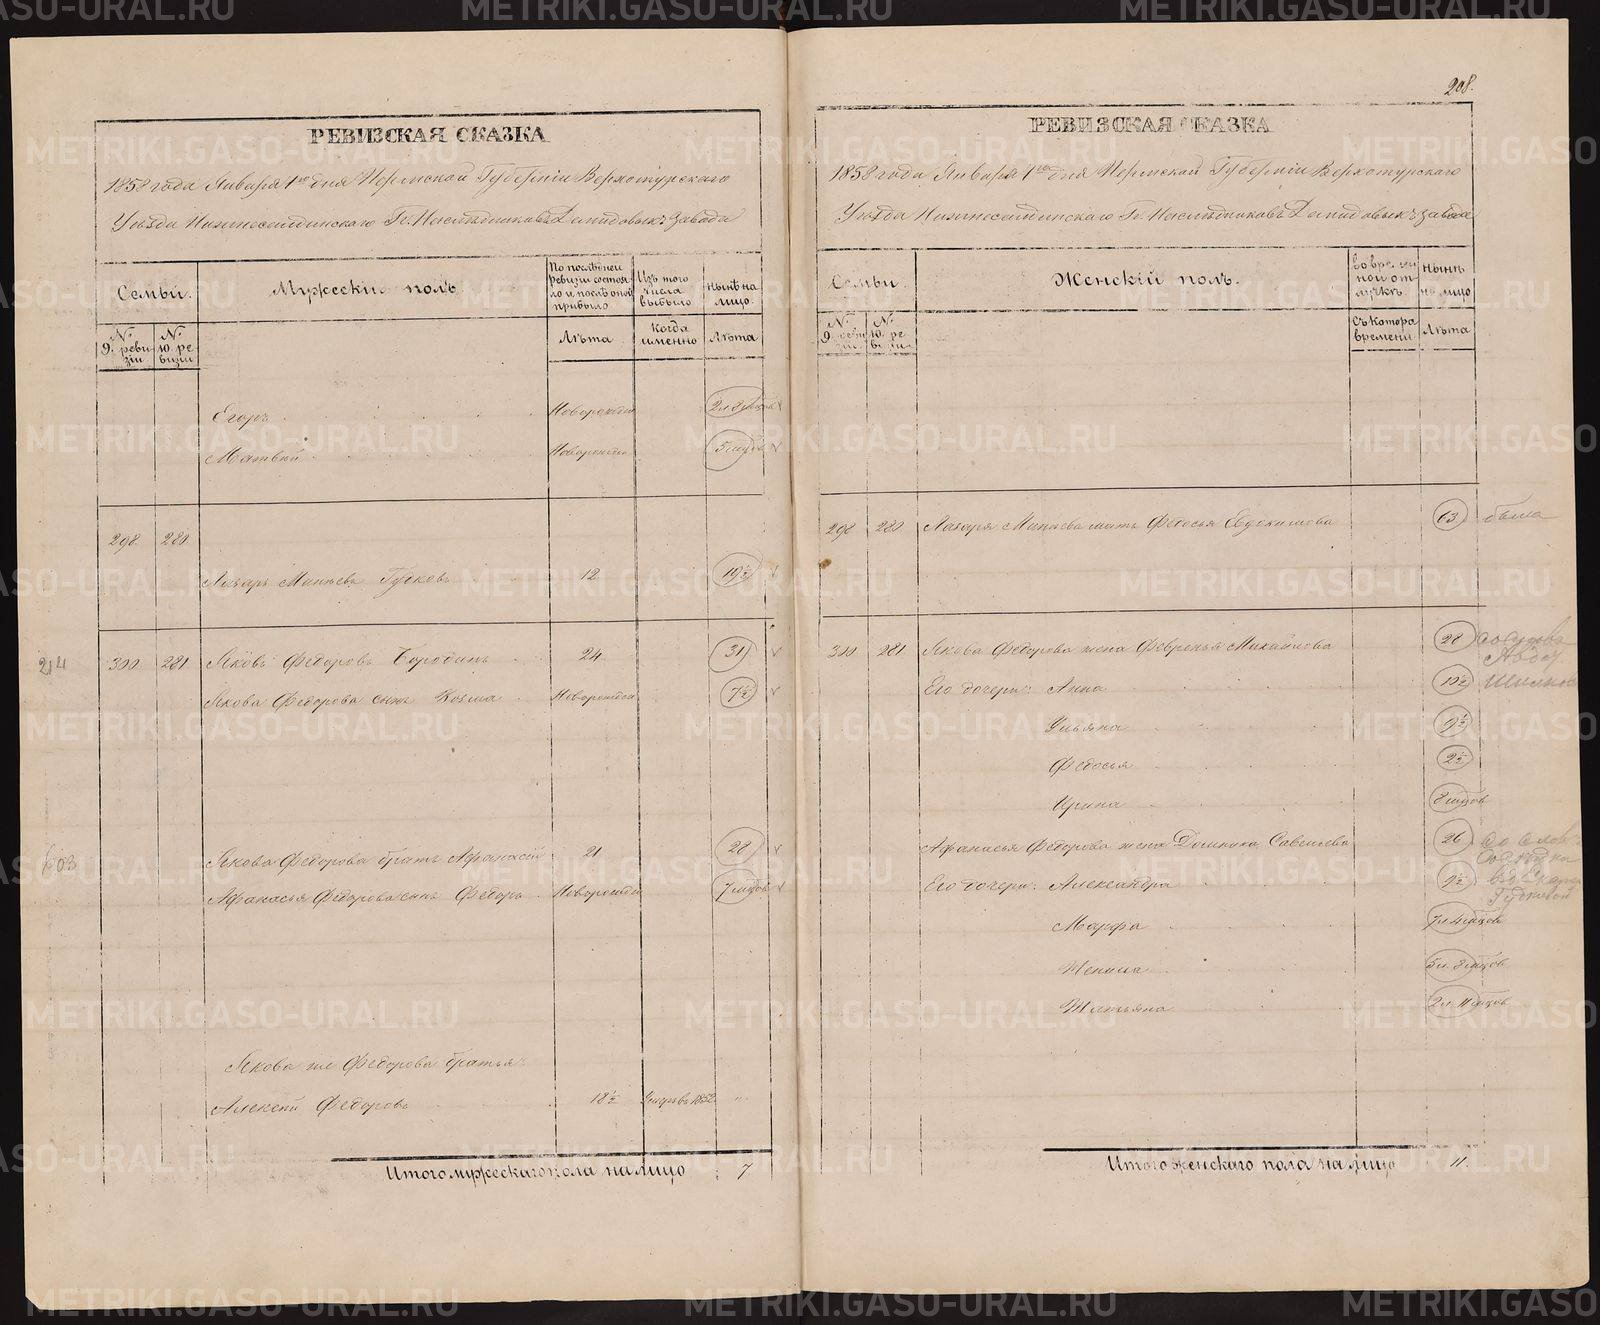 208.
РЕВИЗСКАЯ СКАЗКА
1858 года Января 1го дня Пермской Губернiи Верхотурскаго
Уѣзда Нижнесалдинскаго Гг. Наслѣдниковъ Демидовыхъ завода
Семьи.
Мужескiй полъ.
По послѣдней ревизiи состояло и послѣ оной прибыло
Изъ того числа выбыло
Нынѣ на лицо.
№ 9. ревизiи
№ 10. ревизiи
Лѣта
Когда именно
Лѣта
Егоръ Новорожден
Матвѣй Новорожден
298 280
Лазарь Минѣевъ Гудковъ 12 19½
214 300 281 Яковъ Федоровъ Бородинъ 24 31
Якова Федорова сынъ Козма Новорожден 7½
Якова Федорова братъ Афанасiй 21 28
Афанасья Федорова сынъ Федоръ Новорожден 7 мцов
Якова же Федорова братья:
Алексѣй Федоровъ 18½ Умеръ въ 1852 "
Итого мужескаго пола на лицо 7
РЕВИЗСКАЯ СКАЗКА
1858 года Января 1го дня Пермской Губернiи Верхотурскаго
Уѣзда Нижнесалдинскаго Гг. Наслѣдниковъ Демидовыхъ завода
Семьи.
Женскiй полъ.
Во временной отлучкѣ
Нынѣ на лицо
№ 9. ревизiи
№ 10. ревизiи
Съ котора времени
Лѣта
298 280 Лазаря Минѣева мать Федосья Евдокимова 63
300 281 Якова Федорова жена Февронья Михайлова 28
Его дочери: Анна 10½
Ульяна 9½
Федосья 2½
Ирина 8 мцов
Афанасья Федорова жена Домника Савельева 26
Его дочери: Александра 9½
Марфа 7 л 4 мцов
Ненила 5 л. 8 мцов
Татьяна 2 л. 11 мцов
Итого женскаго пола на лицо 11.
METRIKI.GASO-URAL.RU